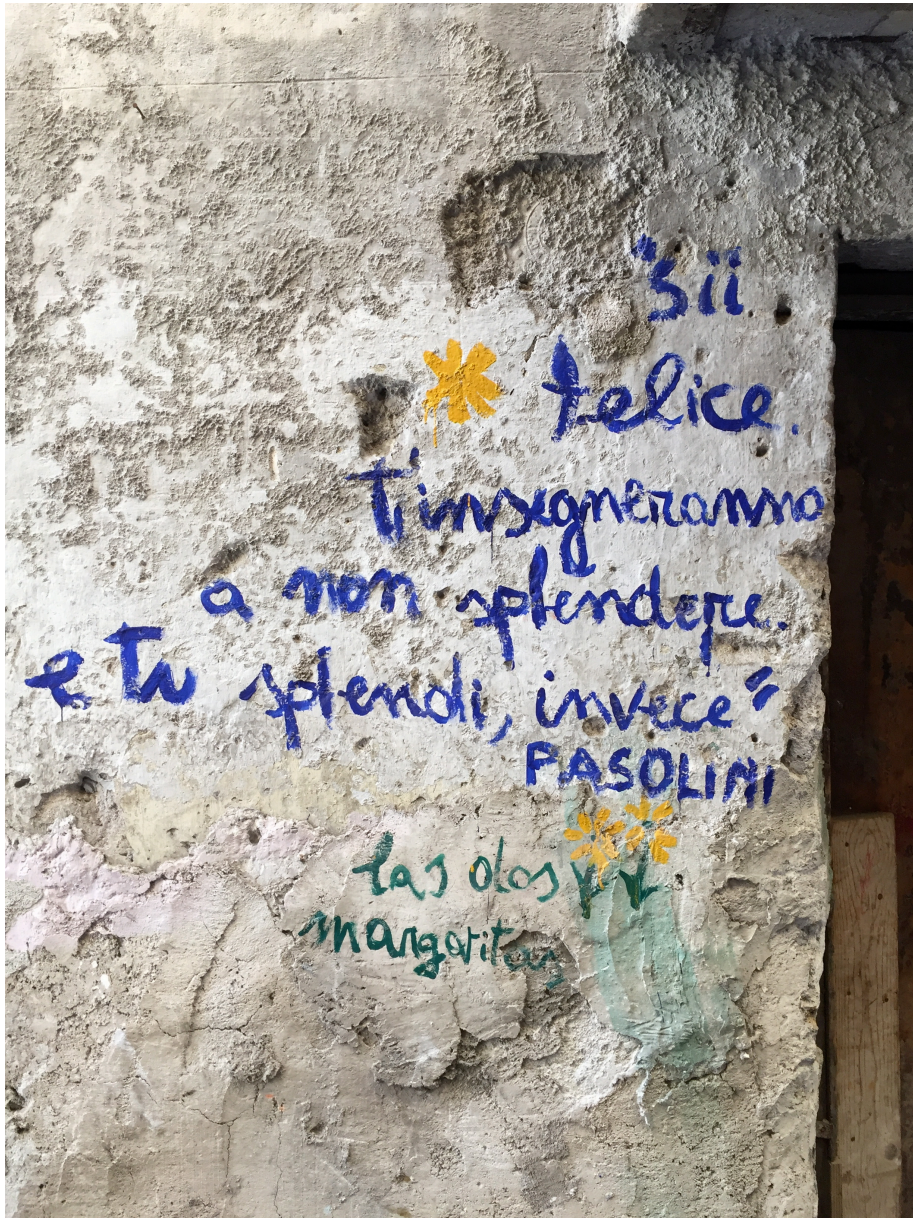 "sii
felice.
T'insegneranno
a non splendere.
e Tu splendi, invece"
PASOLINI
las dos
margaritas